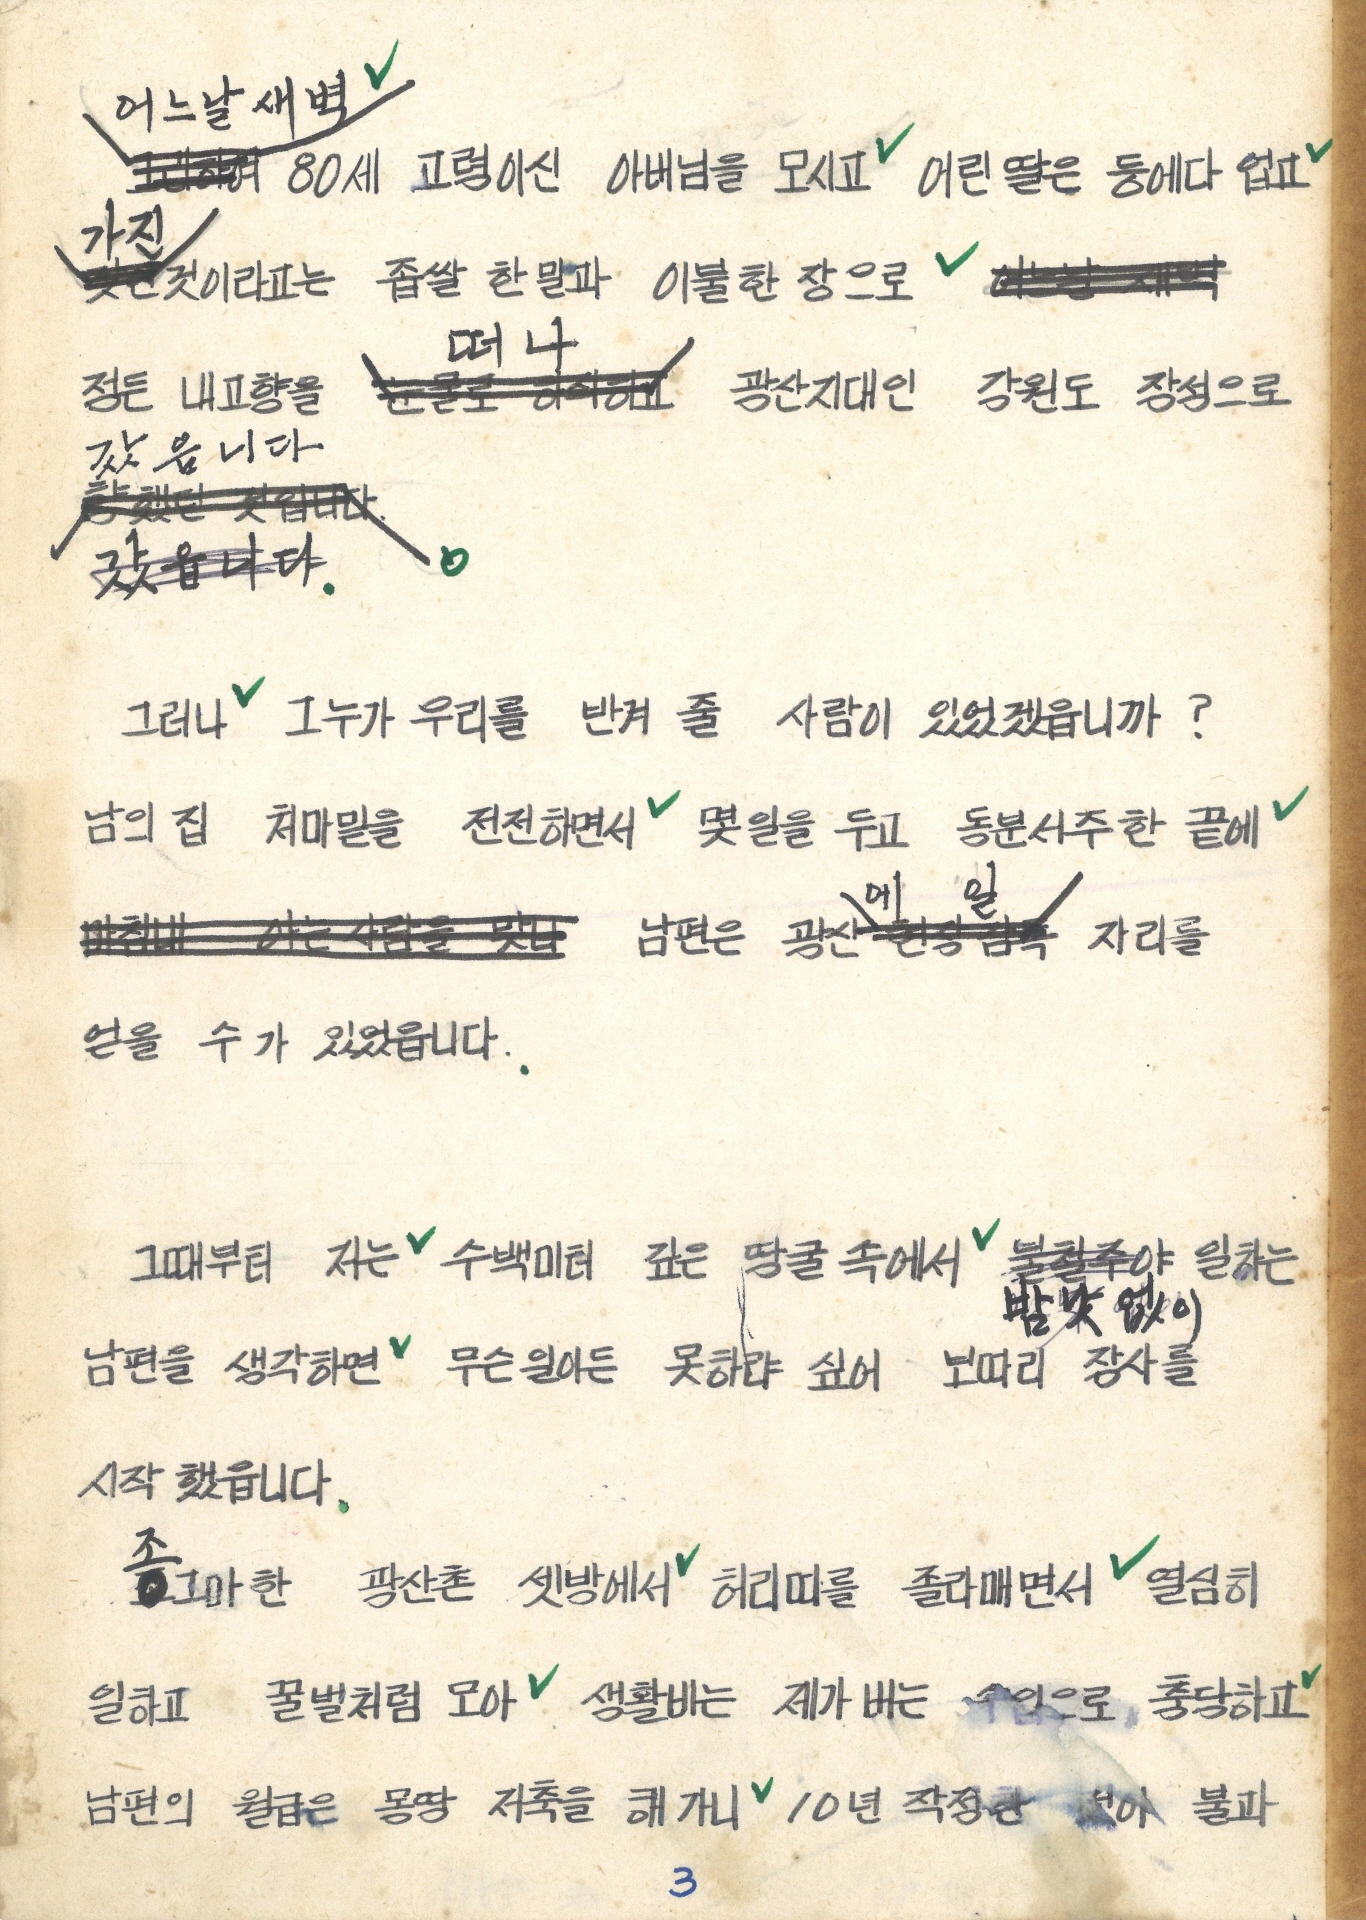 어느날 새벽
80세 고령이신 아버님을 모시고 어린 딸은 등에다 업고
가진
것이라고는 좁쌀 한 말과 이불 한 장으로 어느날 새벽
떠나
정든 내고향을 눈물로 하직하고 광산지대인 강원도 장성으로
갔읍니다
향했던 것입니다.
갔읍니다.
그러나 그누가 우리를 반겨 줄 사람이 있었겠읍니까 ?
남의 집 처마밑을 전전하면서 몇일을 두고 동분서주한 끝에
에 일
마침내 아는 사람을 맞나 남편은 광산 현장 잡목 자리를
얻을 수가 있었읍니다.
그때부터 저는 수백미터 깊은 땅굴 속에서 불철주야 일하는
밤낮 없이
남편을 생각하면 무슨일이든 못하랴 싶어 보따리 장사를
시작 했읍니다.
조
그마한 광산촌 셋방에서 허리띠를 졸라매면서 열심히
일하고 꿀벌처럼 모아 생활비는 제가 버는 수입으로 충당하고
남편의 월급은 몽땅 저축을 해가니 10년 작정한 것이 불과
3